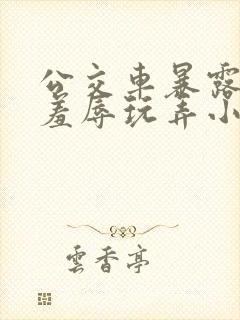 公交车暴露
羞辱玩弄小
雲香亭